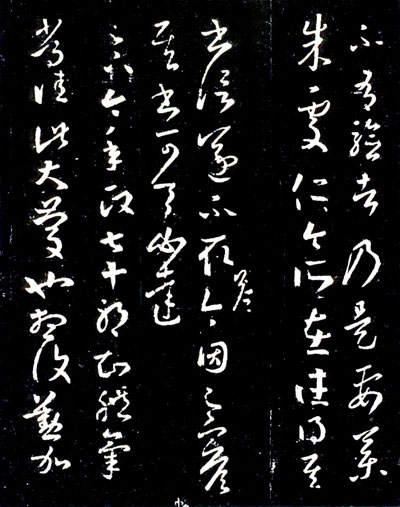 不有驗者乃是要藥
朱處仁今所在往得其
書信遂不取答今因足下答
其書可令必達
足下今年政七十耶知體氣
常佳此大慶也想復懃加